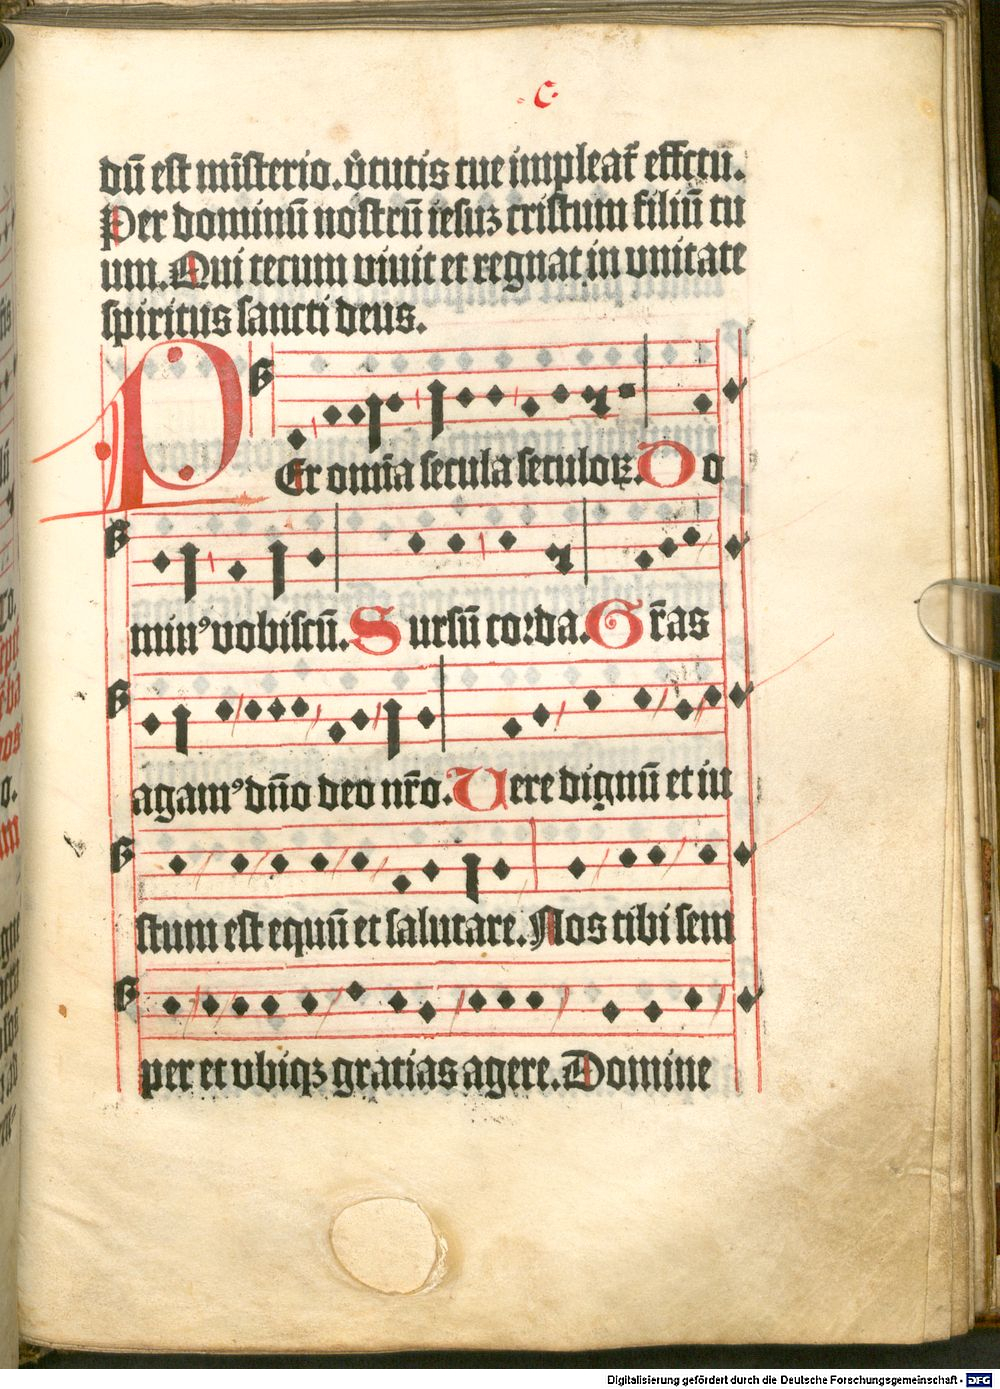 c.
dū est mīsterio. v̄tutis tue impleat᷑ effctu.
Per dominū nostrū iesuꝫ cristum filiū tu
um. Qui tecum viuit et regnat in vnitate
spiritus sancti deus.
PEr omīa secula seculoꝝ. Do
minꝰ vobiscū. Sursū corda. Gr̄as
agamꝰ dn̄o deo nr̄o. Uere dignū et iu
stum est equū et salutare. Nos tibi sem
per et vbiqꝫ gratias agere. Domine
Digitalisierung gefördert durch die Deutsche Forschungsgemeinschaft - DFG